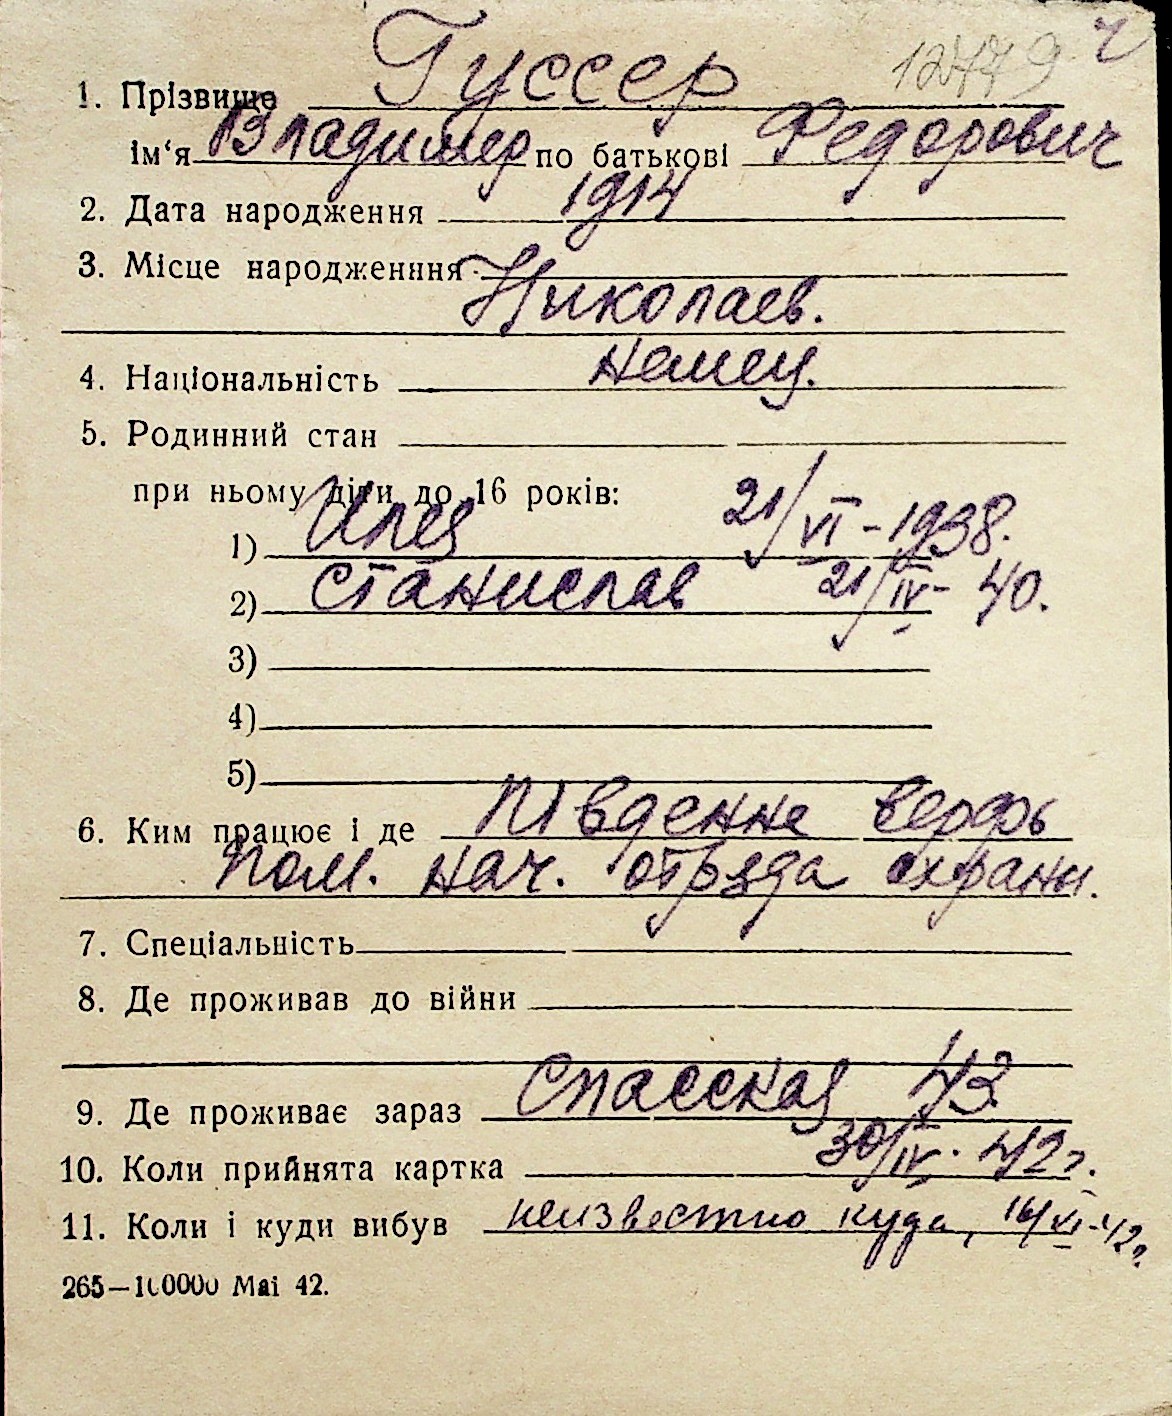 12779 ч
1. Прізвище Гуссер
ім‘я Владимер по батькові Федорович
2. Дата народження 1914
3. Місце народженння
Николаев.
4. Національність немец.
5. Родинний стан
при ньому діти до 16 років:
1) 21/VI-1938.
2) Станислав 21/IV- 40.
3)
4)
5)
6. Ким працює і де Південне верфь
Пом. нач. отряда охраны.
7. Спеціальність
8. Де проживав до війни
9. Де проживає зараз Спасская 43
10. Коли прийнята картка 30/IV. 42г.
11. Коли і куди вибув неизвестно куда, 16/VI-42г.
265—100000 Маі 42.